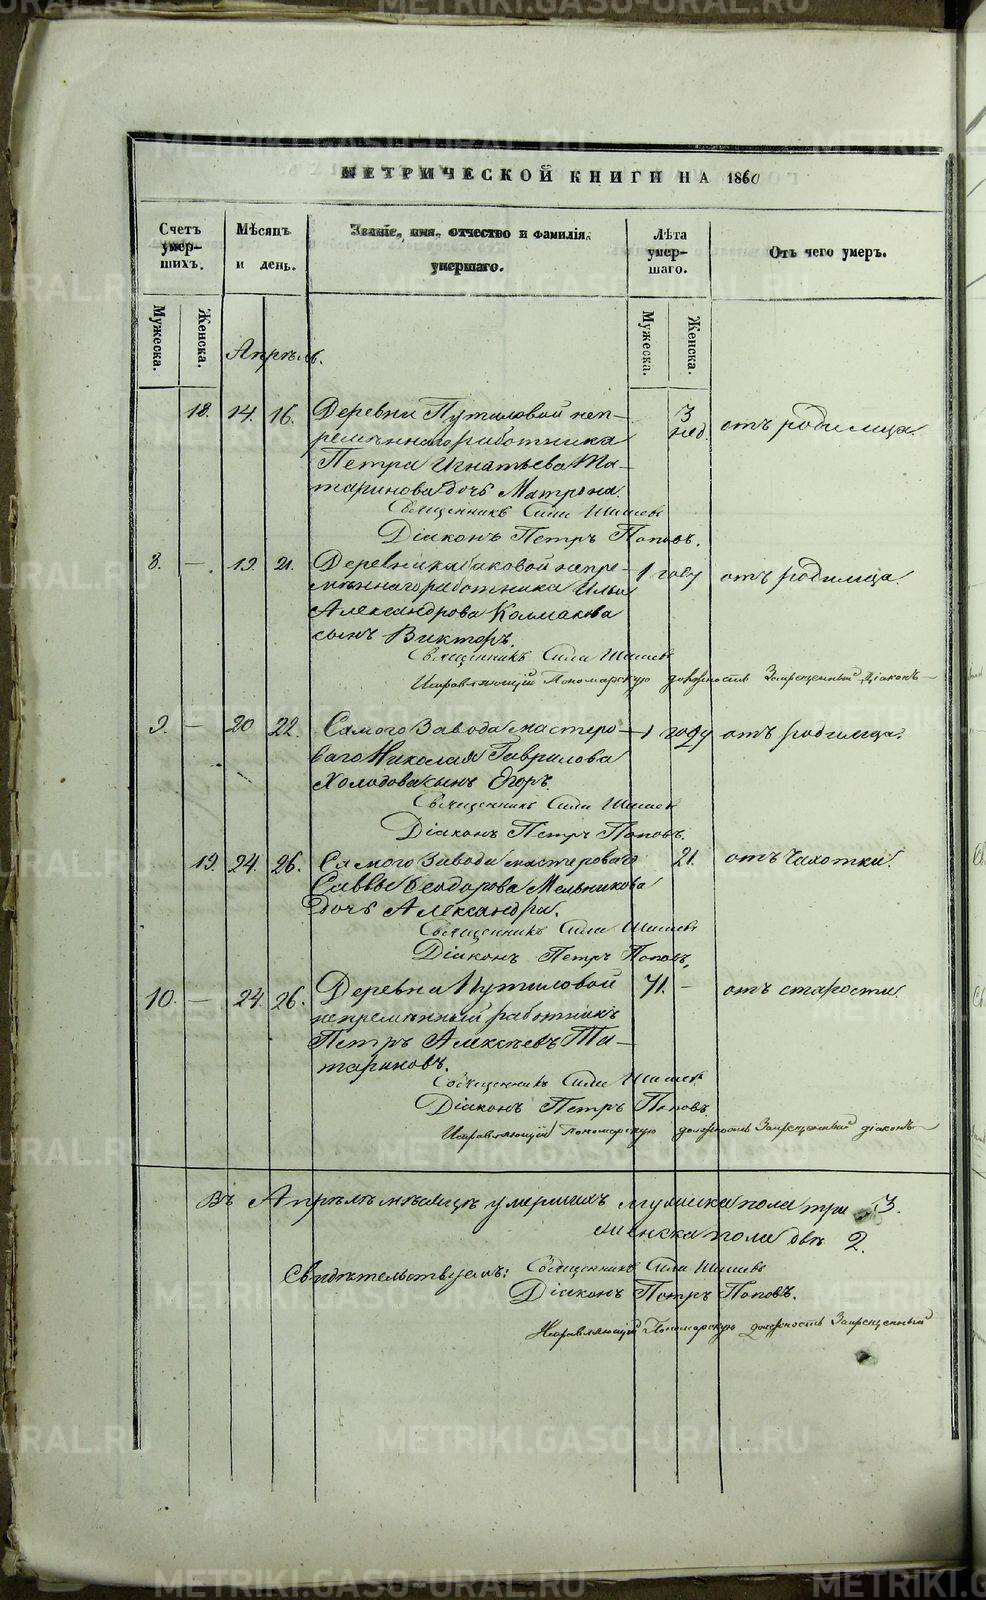 МЕТРИЧЕСКОЙ КНИГИ НА 1860
Счетъ умер-шихъ.
Мѣсяцъ и день.
Званіе, имя, отчество и фамилія умершаго.
Лѣта умер-шаго.
Отъ чего умеръ.
Мужеска.
Женска.
Мужеска.
Женска.
Апрѣль.
18. 14. 16. Деревни Путиловой неп- 3 нед. отъ родимца.
ремѣннаго работника
Петра Игнатьева Та-
таринова дочь Матрона.
Священникъ Сила
Діаконъ Петръ Поповъ.
8. — 19. 21. Деревни непре- 1 году отъ родимца.
мѣннаго работника Ильи
Александрова Колмакова
сынъ Викторъ.
Священникъ Сила
Исправляющій Пономарскую должность Запрещенный Діаконъ
9. — 20 22. Самого Завода мастеро- 1 году отъ родимца.
ваго Николая Гаврилова
Холодова сынъ Егоръ.
Священникъ Сила
Діаконъ Петръ Поповъ.
19. 24. 26. Самого Завода мастероваго 21. отъ Чахотки.
Саввы Ѳеодорова Мельникова
дочь Александра.
Священникъ Сила
Діаконъ Петръ Поповъ,
10. — 24. 26. Деревни Путиловой 71. — отъ старости.
непремѣнный работникъ
Петръ Алексѣевъ Та-
тариновъ.
Священникъ Сила
Діаконъ Петръ Поповъ.
Исправляющій пономарскую должность Запрещенный діаконъ
Въ Апрѣлѣ мѣсяцѣ умершихъ мужеска пола три 3.
женска пола двѣ 2.
Свидѣтельствуемъ: Священникъ Сила
Діаконъ Петръ Поповъ.
Исправляющій Пономарскую должность Запрещенный
METRIKI.GASO-URAL.RU